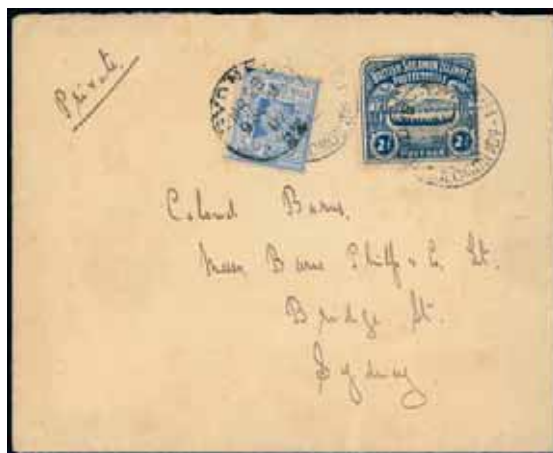 Private.
BRITISH SOLOMON ISLANDS
PROTECTORATE
2d 2d
POSTAGE
Colonel Burns,
Messrs Burns Philp & Co Lt.
Bridge St.
Sydney